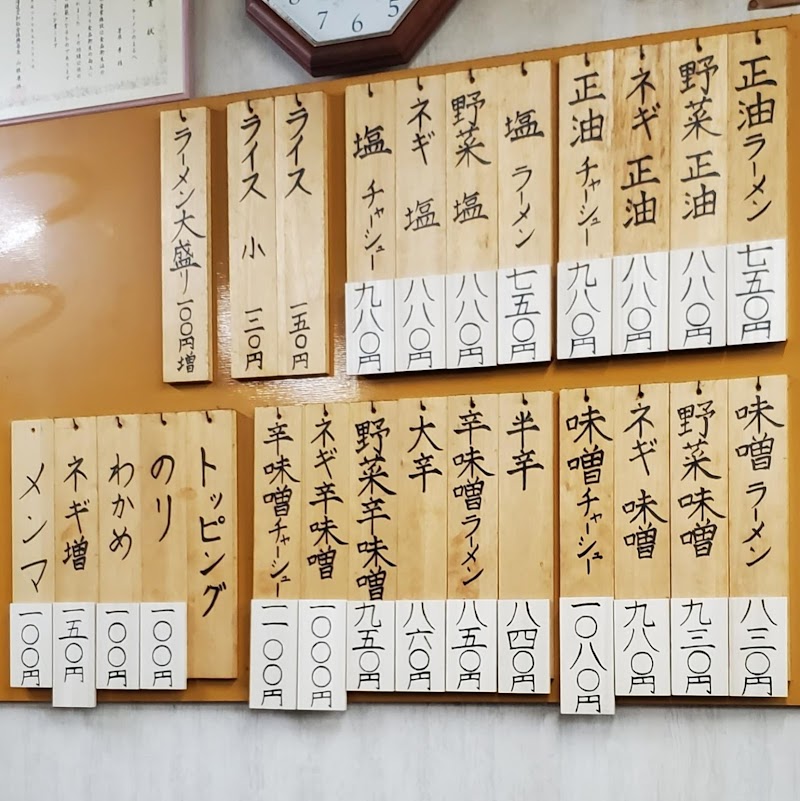 正油ラーメン 七五〇円
野菜正油 八八〇円
ネギ正油 八八〇円
正油チャーシュー 九八〇円
塩ラーメン 七五〇円
野菜塩 八八〇円
ネギ塩 八八〇円
塩チャーシュー 九八〇円
ライス 一五〇円
ライス小 一三〇円
ラーメン大盛り 一〇〇円増
味噌ラーメン 八三〇円
野菜味噌 九三〇円
ネギ味噌 九八〇円
味噌チャーシュー 一〇八〇円
半辛 八四〇円
辛味噌ラーメン 八五〇円
大辛 八六〇円
野菜辛味噌 九五〇円
ネギ辛味噌 一〇〇〇円
辛味噌チャーシュー 一一〇〇円
トッピング
のり 一〇〇円
わかめ 一〇〇円
ネギ増 一五〇円
メンマ 一〇〇円
8 7 6 5